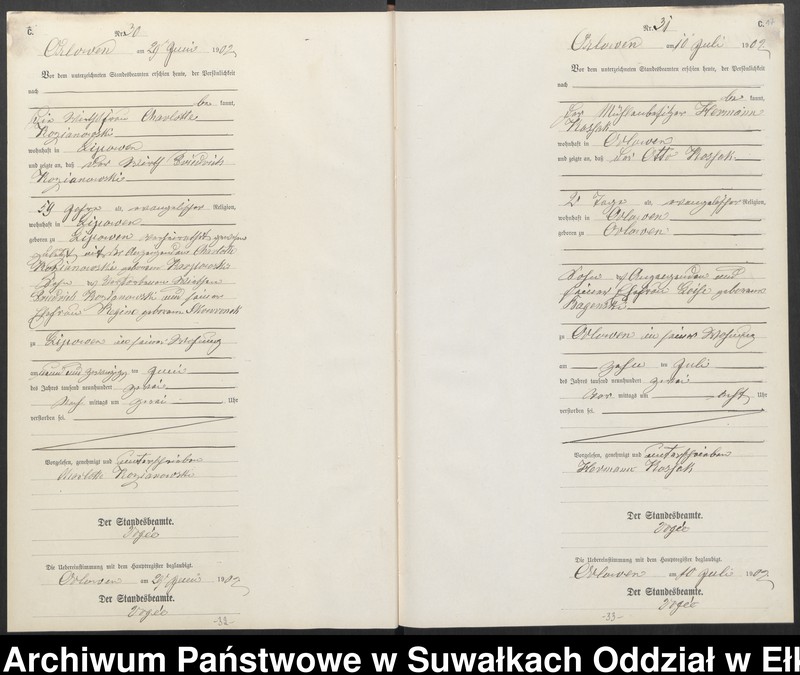 C.
Nr. 30
Orlowen am 29 Juni 1902
Vor dem unterzeichneten Standesbeamten erschien heute, der Persönlichkeit
nach
be kannt,
die Wirthsfrau Charlotte
Kozianowski
wohnhaft in Lipowen
und zeigte an, daß der Wirth Friedrich
Kozianowski
59 Jahre alt, evangelischer Religion,
wohnhaft in Lipowen
geboren zu Lipowen verheirathet gewesen
mit der Anzeigenden Charlotte
Kozianowski geborenen
Sohn des verstorbenen Wirthen
Friedrich Kozianowski und seiner
Ehefrau Regine geborenen Skowronek
zu Lipowen in seiner Wohnung
am neun und zwanzigsten Juni
des Jahres tausend neunhundert zwei
Nach mittags um zwei Uhr
verstorben sei.
Vorgelesen, genehmigt und unterschrieben
Charlotte Kozianowski
Der Standesbeamte.
Die Uebereinstimmung mit dem Hauptregister beglaubigt.
Orlowen am 29 Juni 1902
Der Standesbeamte.
-32-
C.
Nr. 31
Orlowen am 10 Juli 1902
Vor dem unterzeichneten Standesbeamten erschien heute, der Persönlichkeit
nach
be kannt,
der Mühlenbesitzer Hermann
Kossak
wohnhaft in Orlowen
und zeigte an, daß der Otto Kossak
2 Tage alt, evangelischer Religion,
wohnhaft in Orlowen
geboren zu Orlowen
Sohn des Anzeigenden und
seiner Ehefrau geborenen
zu Orlowen in seiner Wohnung
am zehn ten Juli
des Jahres tausend neunhundert zwei
Vor mittags um acht Uhr
verstorben sei.
Vorgelesen, genehmigt und unterschrieben
Hermann Kossak
Der Standesbeamte.
Die Uebereinstimmung mit dem Hauptregister beglaubigt.
Orlowen am 10 Juli 1902
Der Standesbeamte.
-33-
Archiwum Państwowe w Suwałkach Oddział w Ełk